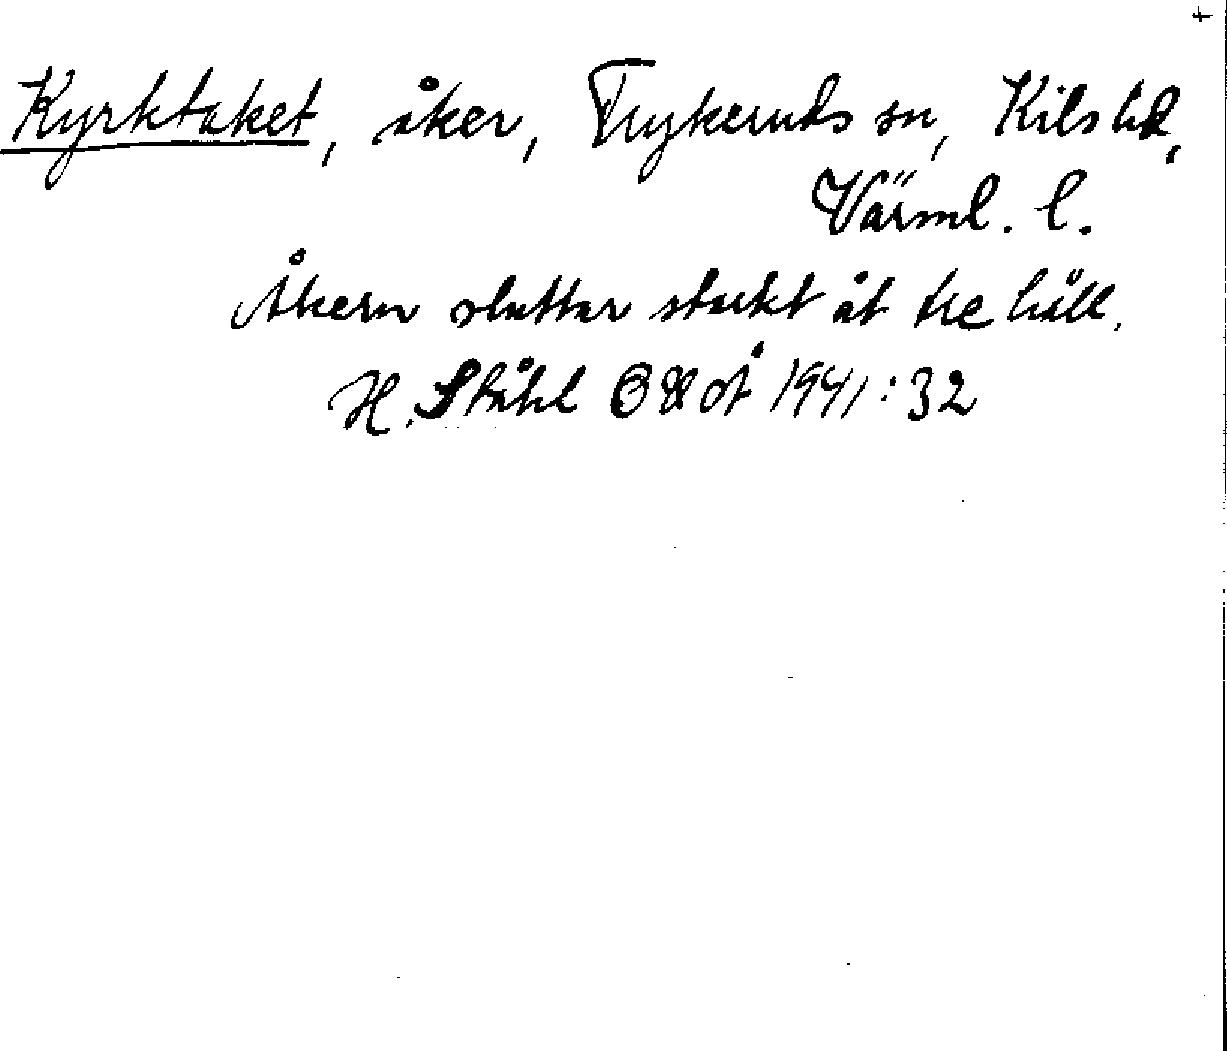 Kyrktaket, åker, Frykeruds sn, Kils hd,
Värml. l.
Åkern sluttar starkt åt tre håll.
H. Ståhl OÄoÅ 1941:32